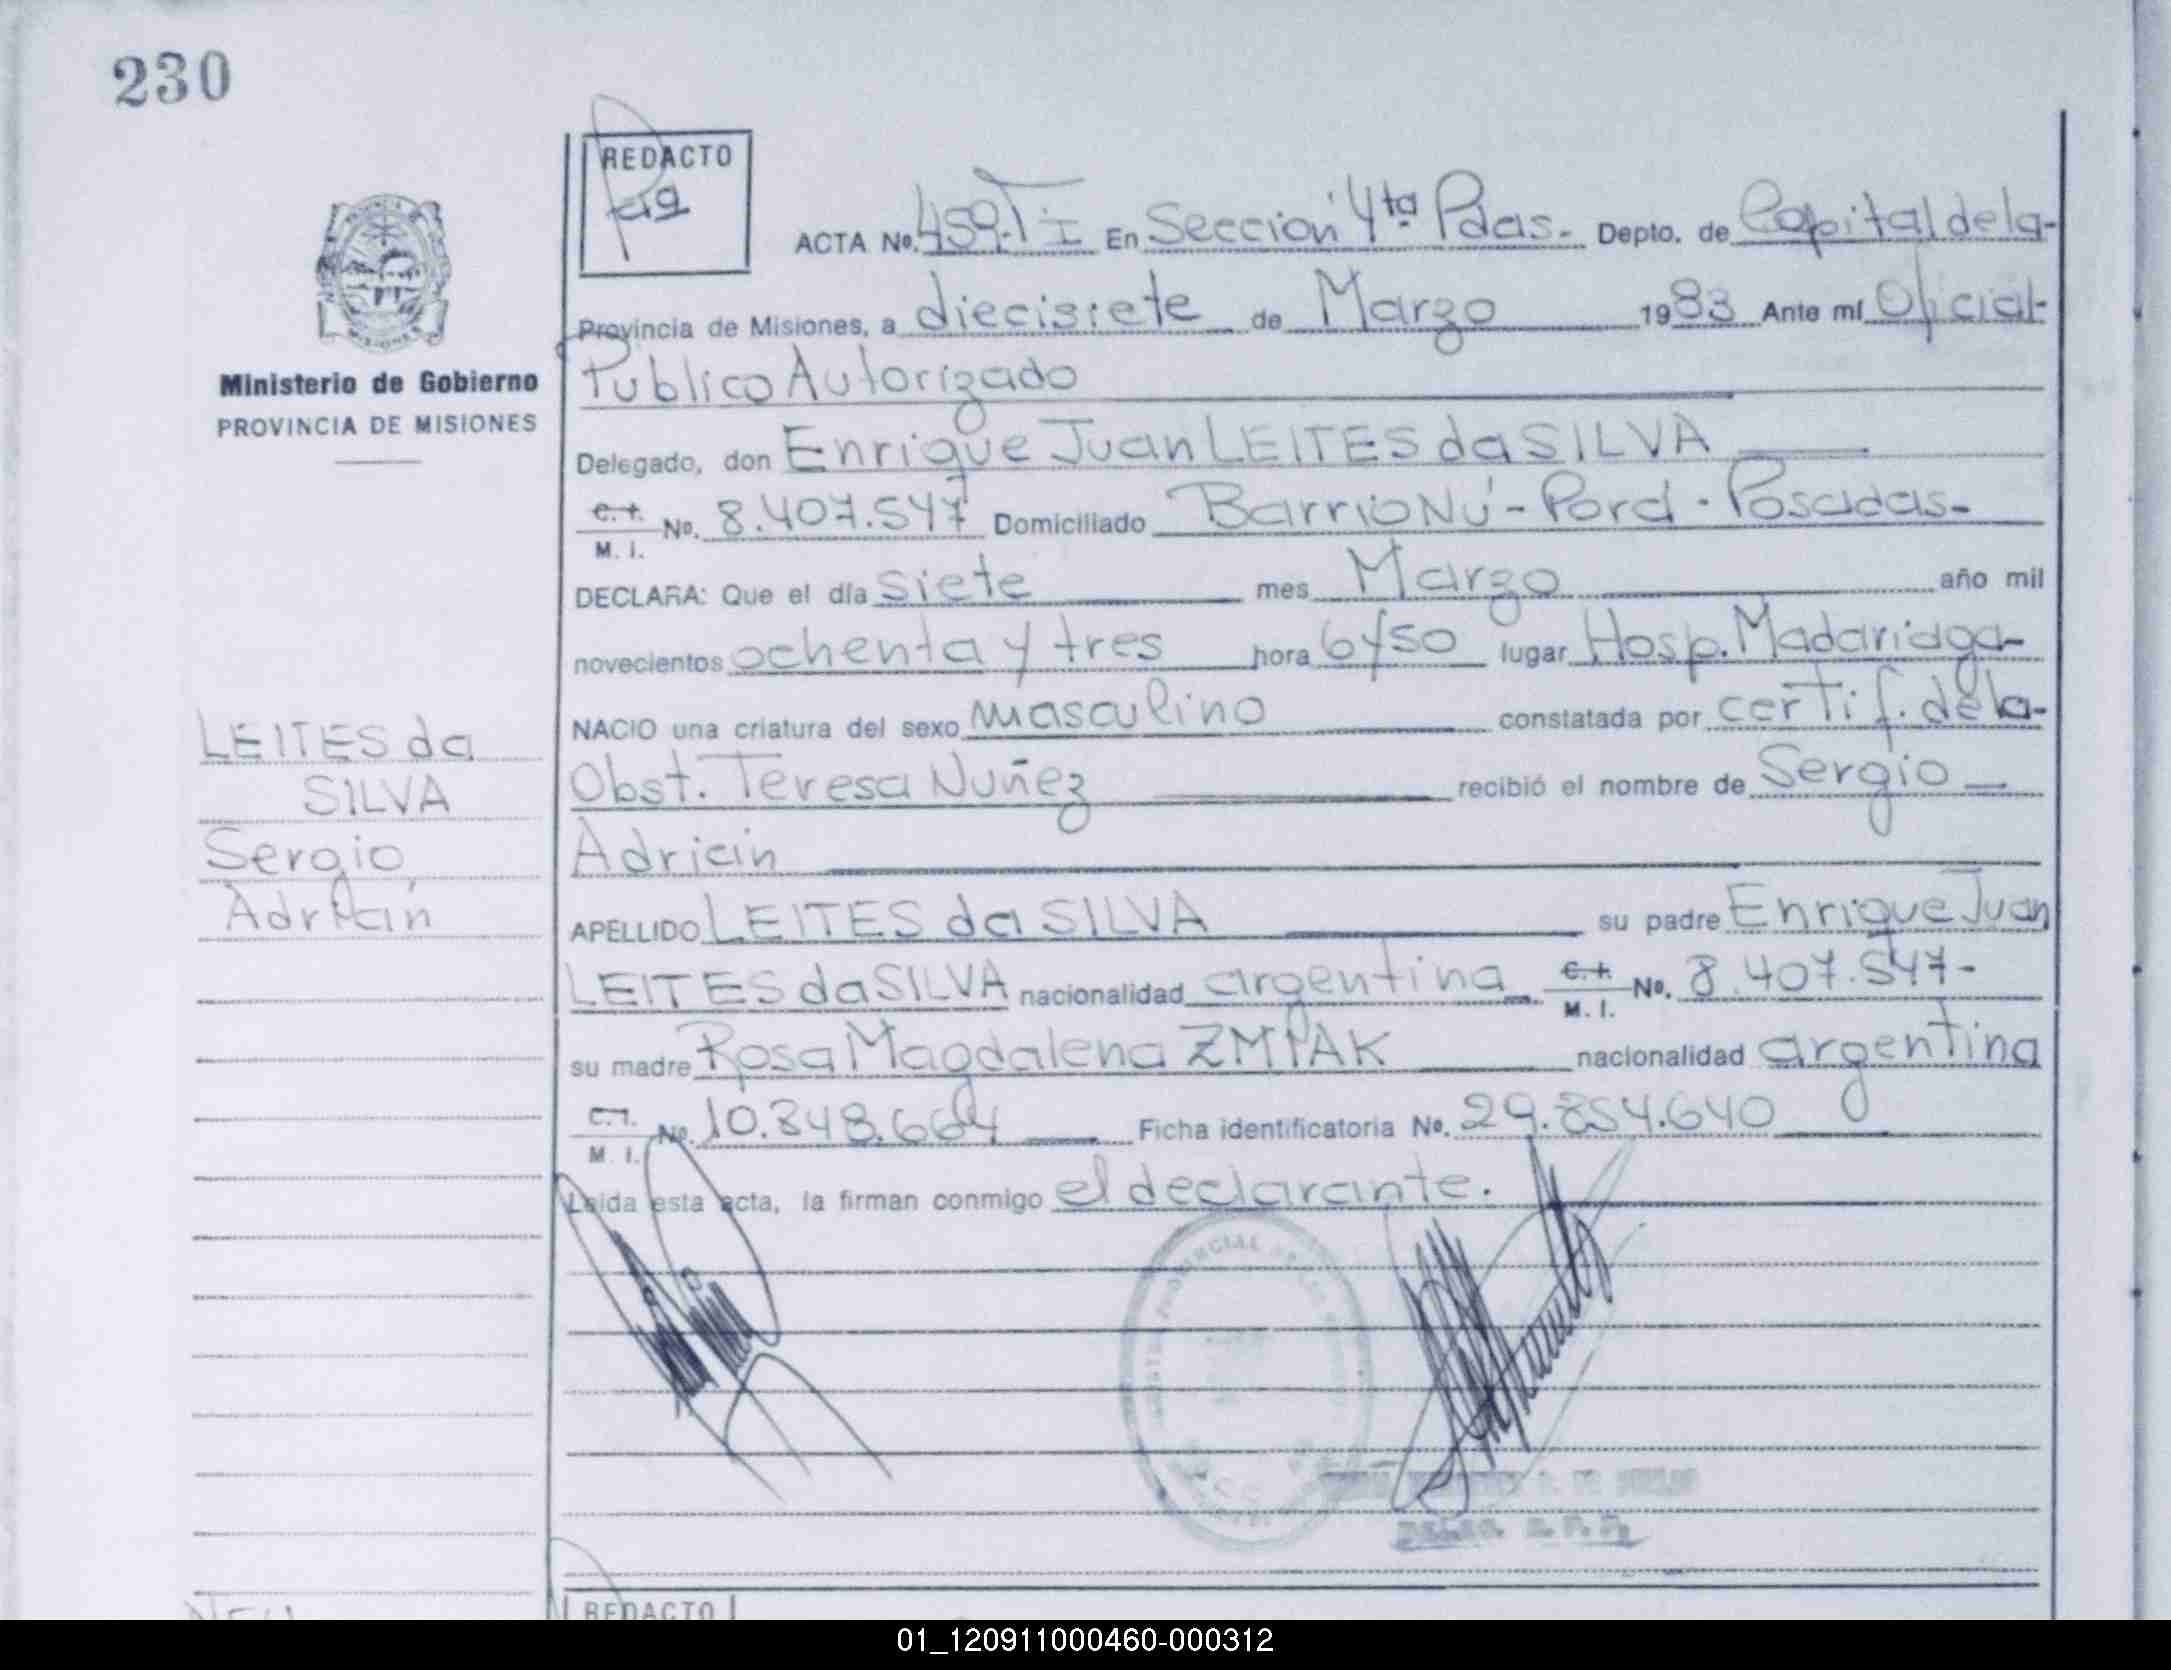 230
REDACTO
ACTA No. 459-T I En Sección 4ta Pdas.- Depto. de Capital de la-
Provincia de Misiones, a diecisiete de Marzo 1983 Ante mí Oficial-
Público Autorizado
Ministerio de Gobierno
PROVINCIA DE MISIONES
Delegado, don Enrique Juan LEITES da SILVA
C. I. M. I. No. 8.407.547 Domiciliado Barrio Ñú-Porá - Posadas-
DECLARA: Que el día siete mes Marzo año mil
novecientos ochenta y tres hora 6y50 lugar Hosp. Madariaga-
NACIO una criatura del sexo masculino constatada por certif. de la-
Obst. Teresa Nuñez recibió el nombre de Sergio
Adrián
APELLIDO LEITES da SILVA su padre Enrique Juan
LEITES da SILVA nacionalidad argentina C. I. M. I. No. 8.407.547-
su madre Rosa Magdalena nacionalidad argentina
C. I. M. I. No. 10.848.664 Ficha identificatoria No. 29.854.640
Leida esta acta, la firman conmigo el declarante.
LEITES da
SILVA
Sergio
Adrián
REDACTO
01_120911000460-000312